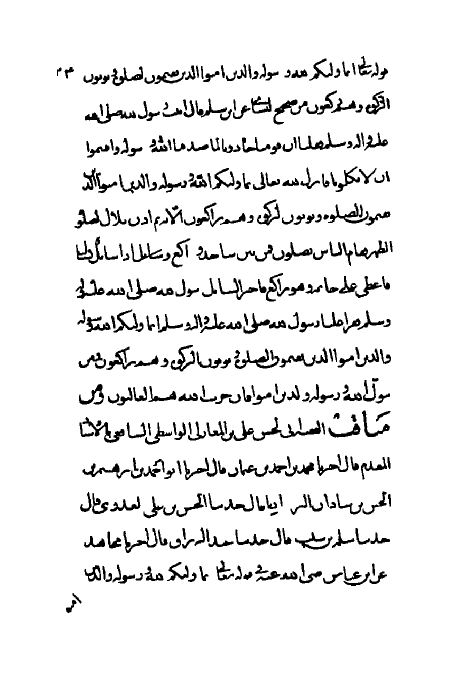 قوله تعالى انما وليكم الله ورسوله والذين امنوا الذين يقيمون الصلوة ويؤتون ٢٣
الزكوة وهم راكعون من صحيح النسائي عن ابن سلام قال اتيت رسول الله صلى الله
عليه واله وسلم فقلنا ان قومنا حادونا لما صدقنا الله ورسوله واقسموا
ان لا يكلمونا فانزل الله تعالى انما وليكم الله ورسوله والذين امنوا الذين
يقيمون الصلوة ويؤتون الزكوة وهم راكعون ثم اذن بلال لصلوة
الظهر فقام الناس يصلون فمن بين ساجد وراكع وسائل اذا سائل
فاعطى علي خاتمه وهو راكع فاخبر السائل رسول الله صلى الله عليه واله
وسلم فقرا علينا رسول الله صلى الله عليه واله وسلم انما وليكم الله ورسوله
والذين امنوا الذين يقيمون الصلوة ويؤتون الزكوة وهم راكعون ومن
يتول الله ورسوله والذين امنوا فان حزب الله هم الغالبون ومن
مناقب ابي الحسن علي بن المغازلي الواسطي الشافعي بالاسناد
المقدم قال اخبرنا محمد بن احمد بن عثمان قال اخبرنا ابو احمد بن ابرهيم بن
الحسن بن شاذان البزاز اذنا قال حدثنا الحسن بن علي العدوي قال
حدثنا سلمة بن شبيب قال حدثنا عبد الرزاق قال اخبرنا مجاهد
عن ابن عباس رضي الله عنه في قوله تعالى انما وليكم الله ورسوله والذين
امنوا